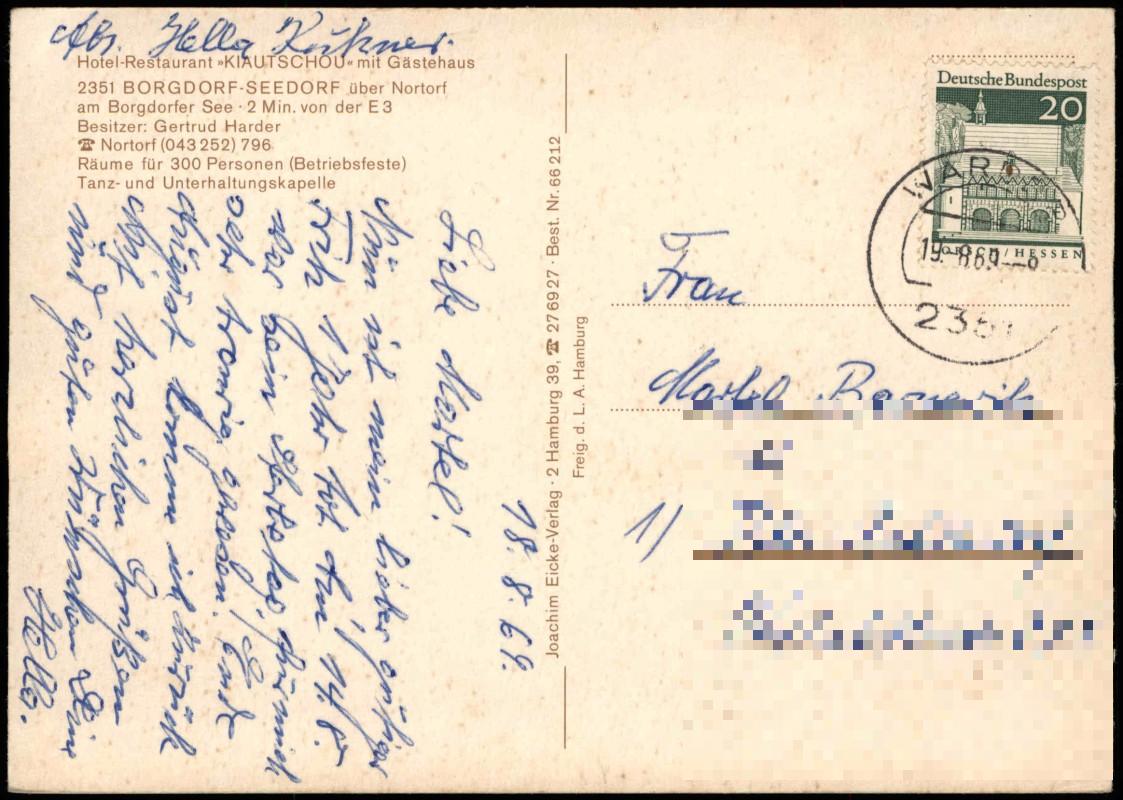 Abs. Hella Kükner.
Hotel-Restaurant »KIAUTSCHOU« mit Gästehaus
2351 BORGDORF-SEEDORF über Nortorf
am Borgdorfer See · 2 Min. von der E 3
Besitzer: Gertrud Harder
☎ Nortorf (043 252) 796
Räume für 300 Personen (Betriebsfeste)
Tanz- und Unterhaltungskapelle
18. 8. 69.
Liebe Martel!
Nun ist mein lieber gütiger
1 Jahr tot. Am 14. 8.
war sein
sehr traurig gewesen. Ende
August komme ich zurück
Mit herzlichen Grüßen
und guten Wünschen Deine
Hella.
Joachim Eicke-Verlag · 2 Hamburg 39, ☎ 27 69 27 · Best. Nr. 66 212
Freig. d. L. A. Hamburg
Deutsche Bundespost
20
LORSCH/HESSEN
WAR
19.-8.69--9
235
Frau
Martel
1)